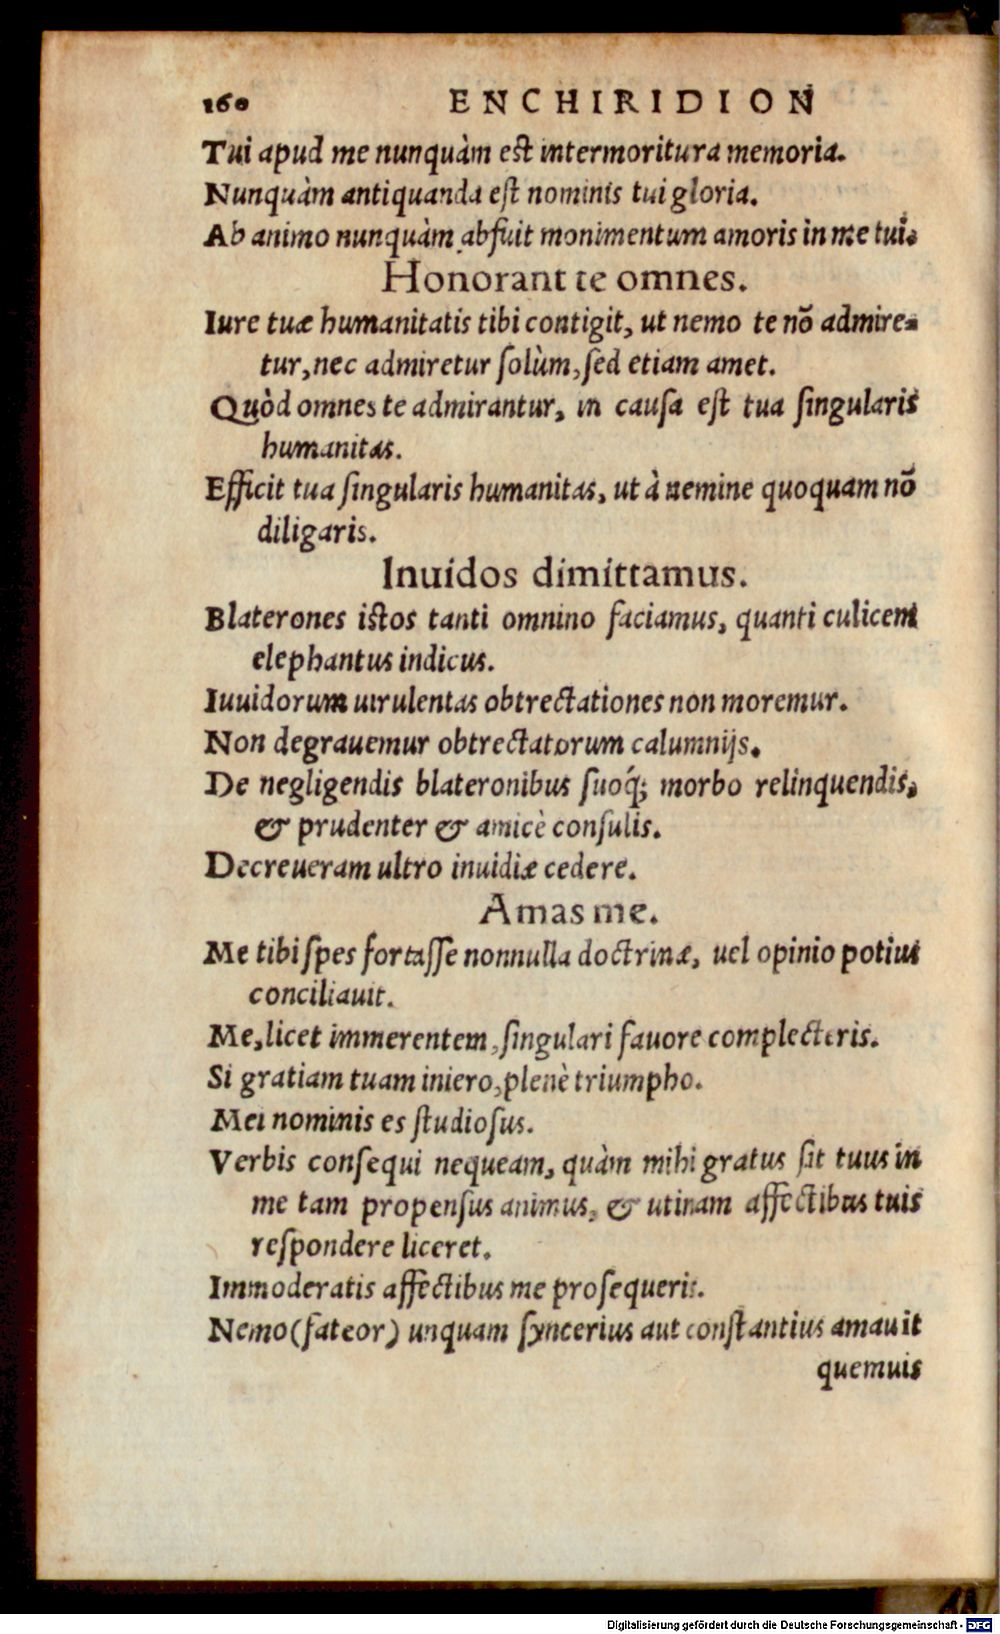 160 ENCHIRIDION
Tui apud me nunquàm est intermoritura memoria.
Nunquàm antiquanda eſt nominis tui gloria.
Ab animo nunquàm abfuit monimentum amoris in me tui.
Honorant te omnes.
Iure tuæ humanitatis tibi contigit, ut nemo te nõ admire-
tur, nec admiretur ſolùm, ſed etiam amet.
Quòd omnes te admirantur, in cauſa eſt tua ſingularis
humanitas.
Efficit tua ſingularis humanitas, ut à nemine quoquam nõ
diligaris.
Inuidos dimittamus.
Blaterones istos tanti omnino faciamus, quanti culicem
elephantus indicus.
Iuuidorum uirulentas obtrectationes non moremur.
Non degrauemur obtrectatorum calumnijs.
De negligendis blateronibus ſuoq́; morbo relinquendis,
& prudenter & amicè conſulis.
Decreueram ultro inuidiæ cedere.
Amas me.
Me tibi ſpes fortaſſe nonnulla doctrinæ, uel opinio potius
conciliauit.
Me, licet immerentem, ſingulari fauore complecteris.
Si gratiam tuam iniero, plenè triumpho.
Mei nominis es ſtudioſus.
Verbis conſequi nequeam, quàm mihi gratus ſit tuus in
me tam propenſus animus, & utinam affectibus tuis
reſpondere liceret.
Immoderatis affectibus me proſequeris.
Nemo (fateor) unquam ſyncerius aut conſtantius amauit
quemuis
Digitalisierung gefördert durch die Deutsche Forschungsgemeinschaft - DFG